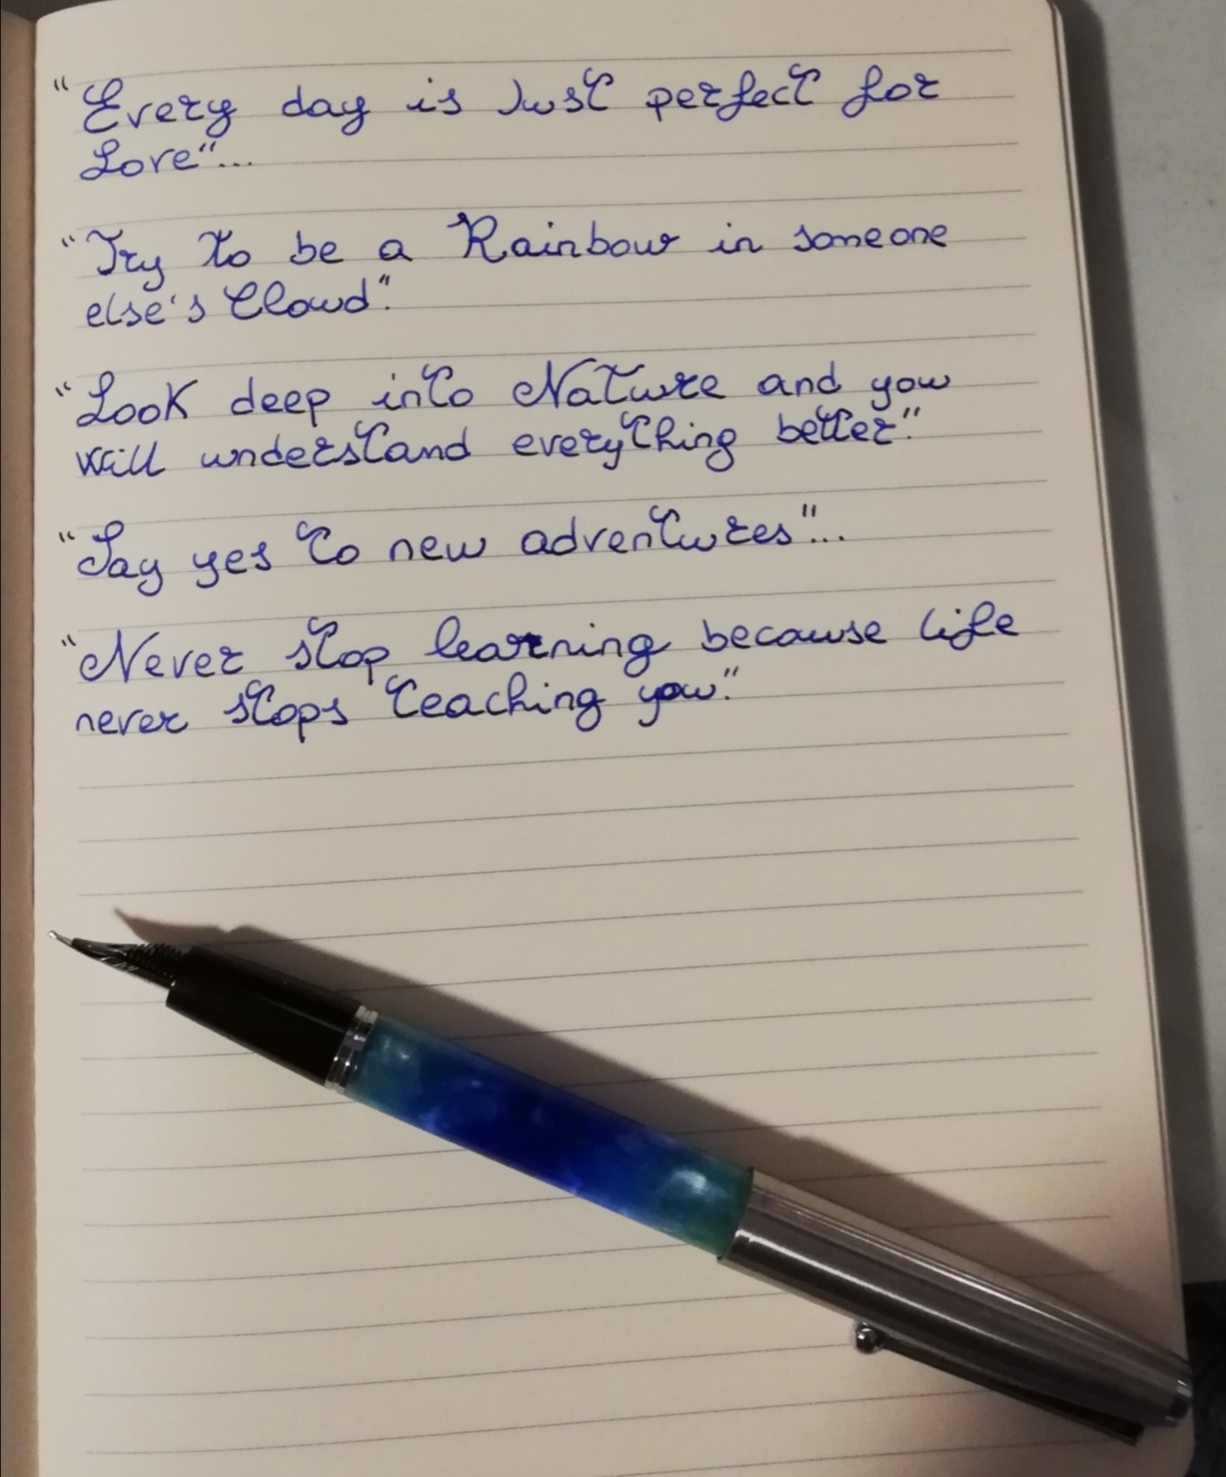 "Every day is Just perfect for
Love"...
"Try to be a Rainbow in someone
else's Cloud".
"Look deep into Nature and you
will understand everything better".
"Say yes to new adventures"...
"Never stop learning because life
never stops teaching you".